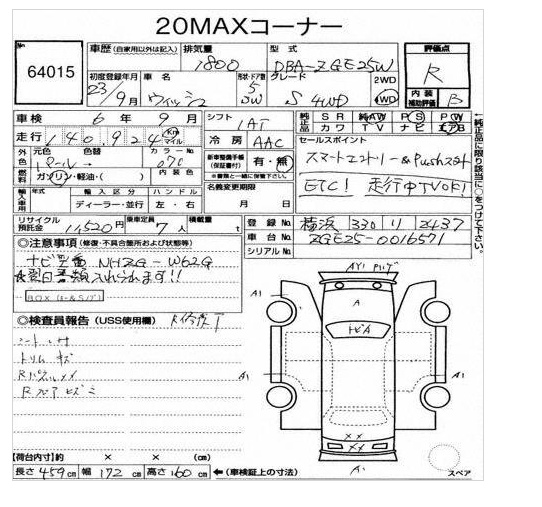 20MAXコーナー
No 64015
車歴 (自家用以外は記入) 排気量 1800 型式 DBA-ZGE25W
評価点 R
初度登録年月 23/9月 車名 ウィッシュ 形状・ドア数 5 SW グレード S 4WD 2WD 4WD
内装補助評価 B
車検 6年9月 シフト IAT
純正品 SR 純AW PS PW
カワ TV ナビ エアB
走行 140,924 Km マイル 冷房 AAC
セールスポイント
スマートエントリー&Pushスタート
ETC! 走行中TVOK!
外色 元色 色替 カラーNo 070
パール
燃料 ガソリン・軽油・( ) 内装色
新車整備手帳(保証書付) 有・無
※書類と一緒に保管して下さい。
輸入車用 年式 モデル 輸入区分 ハンドル
ディーラー・並行 左・右
名義変更期限 月 日
←純正品に限り該当に○をつけて下さい。
リサイクル預託金 11,520円 乗車定員 7人 積載量 t
登録No. 横浜 330 リ 2437
車台No. ZGE25-0016571
シリアルNo.
◎注意事項 (修復・不具合箇所および状態等)
ナビ型番 NHZG-W62G
★翌日書類入れられます!!
◎検査員報告 (USS使用欄)
シート
トリム キズ
A1
A
A1
A1
A1
A1
【荷台内寸】約 × × (cm)
長さ 459cm 幅 172cm 高さ 160cm ←(車検証上の寸法)
スペア